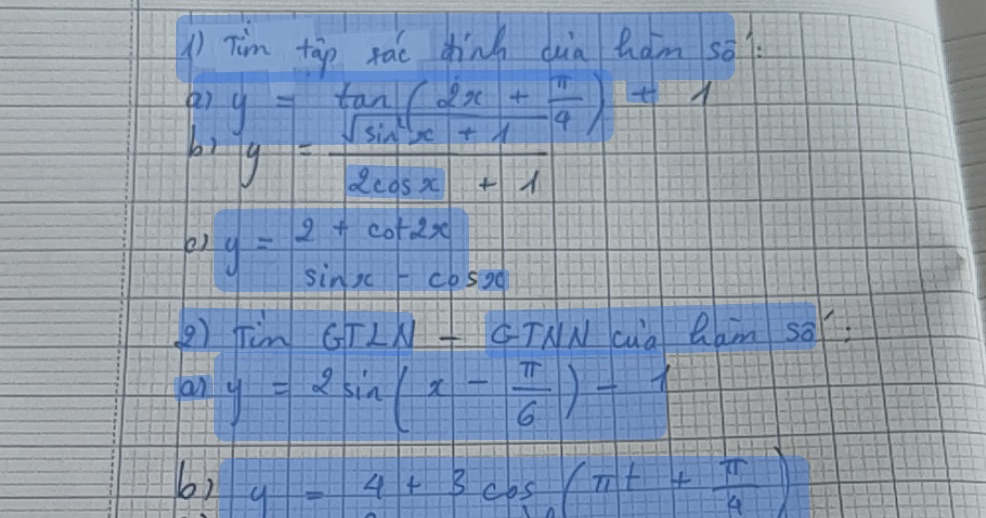 1) Tìm tập xác định của hàm số:
a) y = tan(2x + π/4) + 1
b) y = √(sin²x + 1) / (2cosx + 1)
c) y = (2 + cot2x) / (sinx - cosx)
2) Tìm GTLN - GTNN của hàm số:
a) y = 2sin(x - π/6) - 1
b) y = 4 + 3cos(πt + π/4)